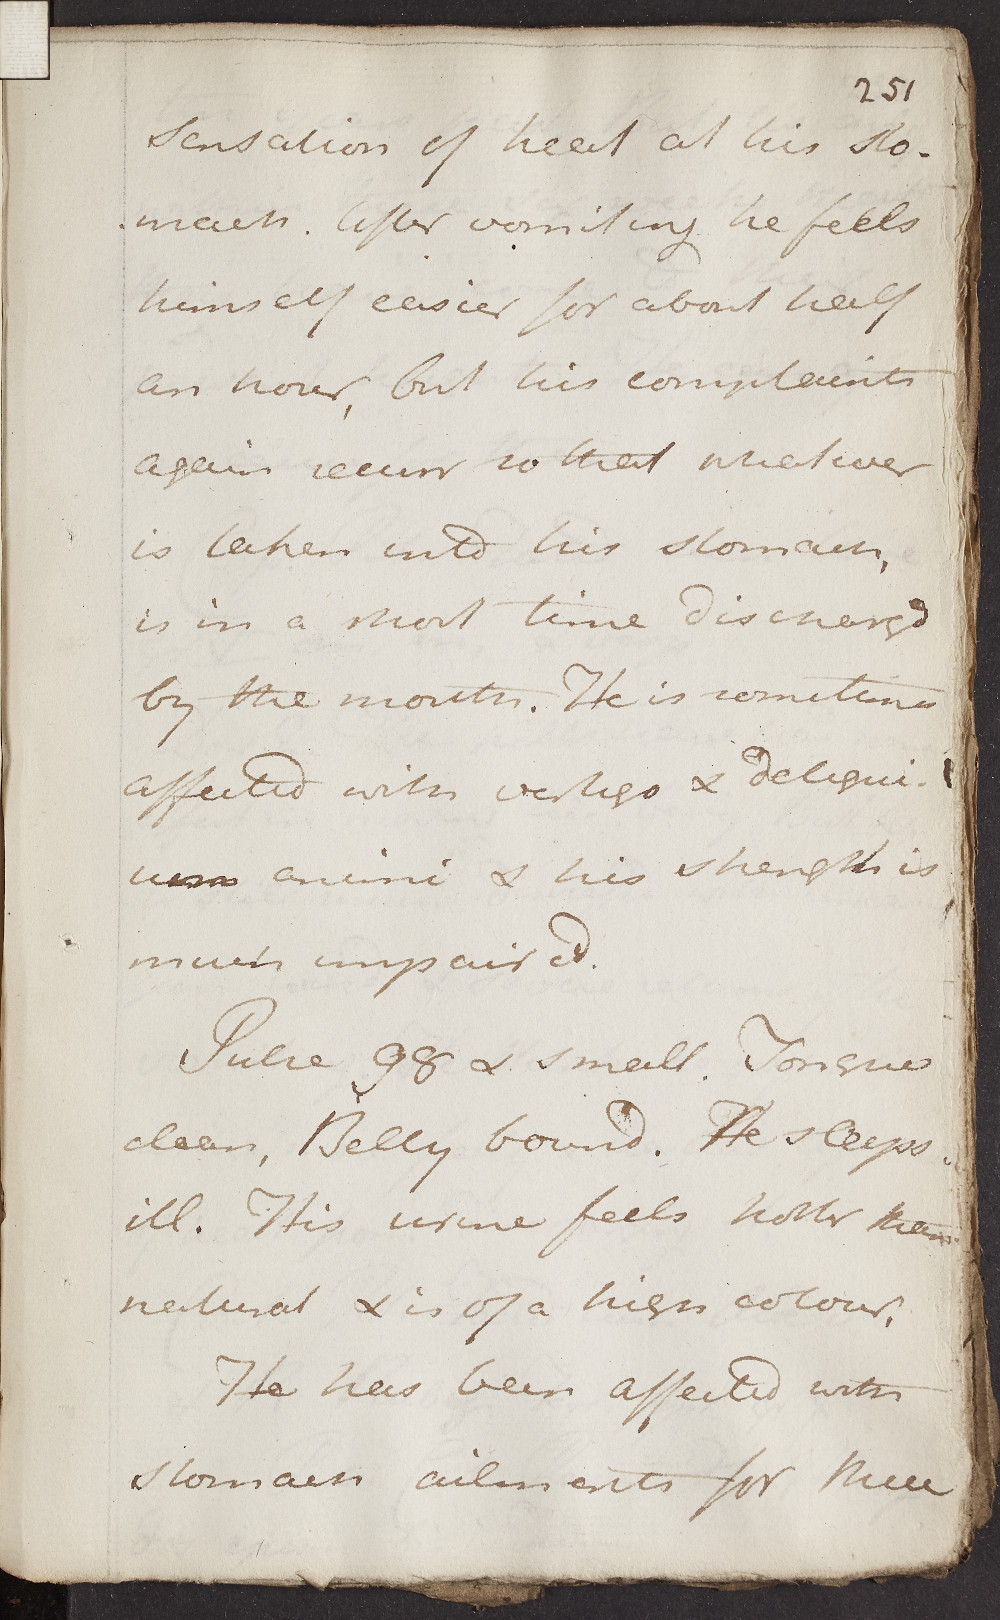 251
sensation of heat at his sto-
mach. After vomiting he feels
himself easier for about half
an hour, but his complaints
again recurr so that whatever
is taken into his stomach,
is in a short time discharg'd
by the mouth. He is sometimes
affected with vertigo & deliqui-
um animi & his strength is
much impair'd.
Pulse 98 & small. Tongue
clean, Belly bound. He sleeps
ill. His urine feels hotter than
natural & is of a high colour.
He has been affected with
stomach ailments for three